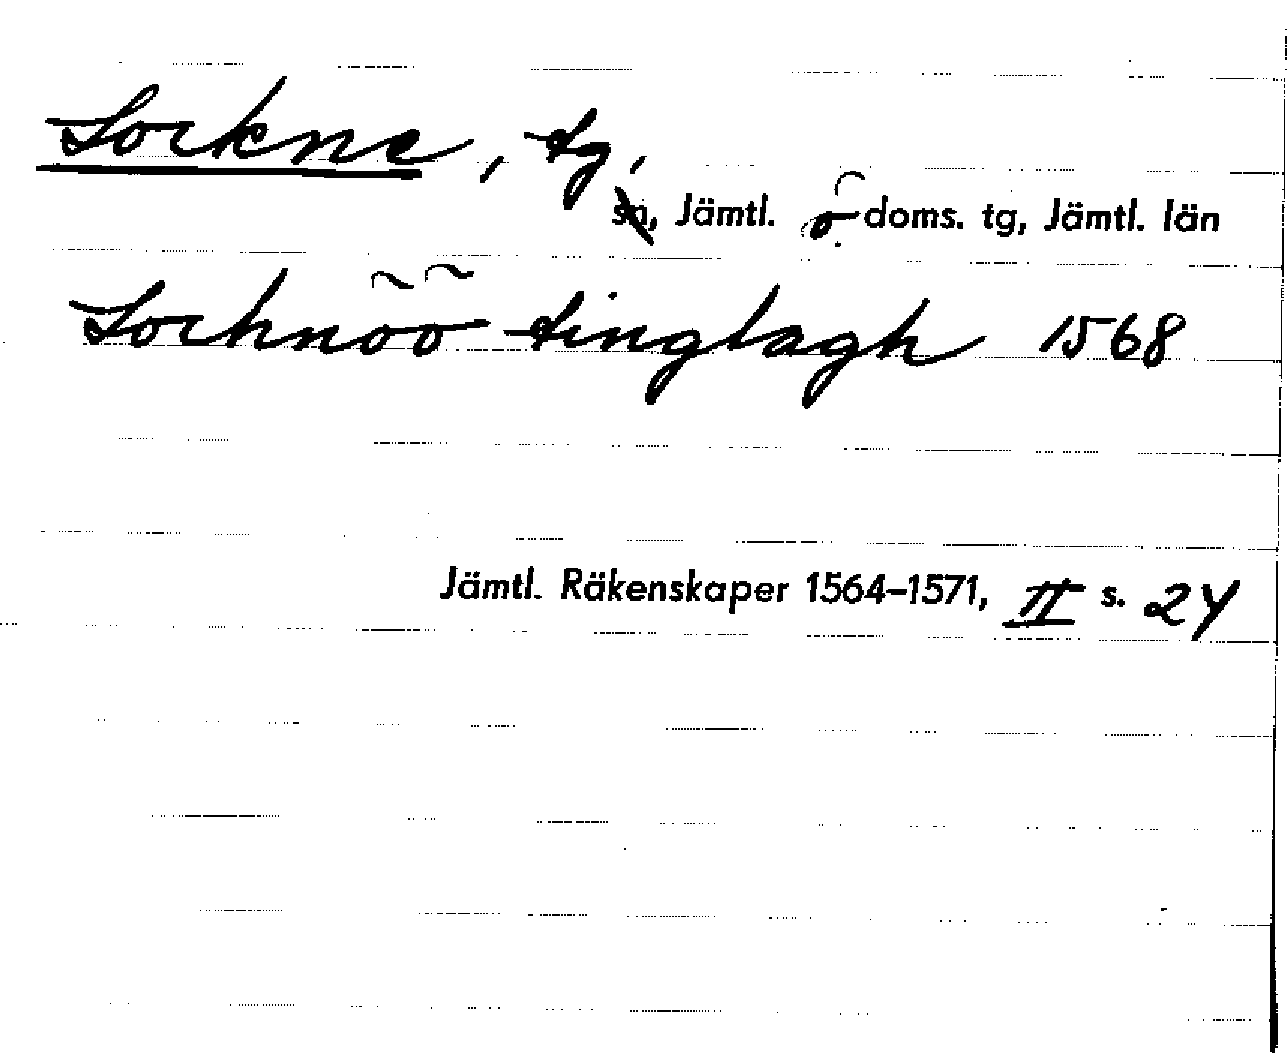 Lockne, tg,
sn, Jämtl. ö doms. tg, Jämtl. län
Lochnöö tinglagh 1568
Jämtl. Räkenskaper 1564–1571, II s. 24